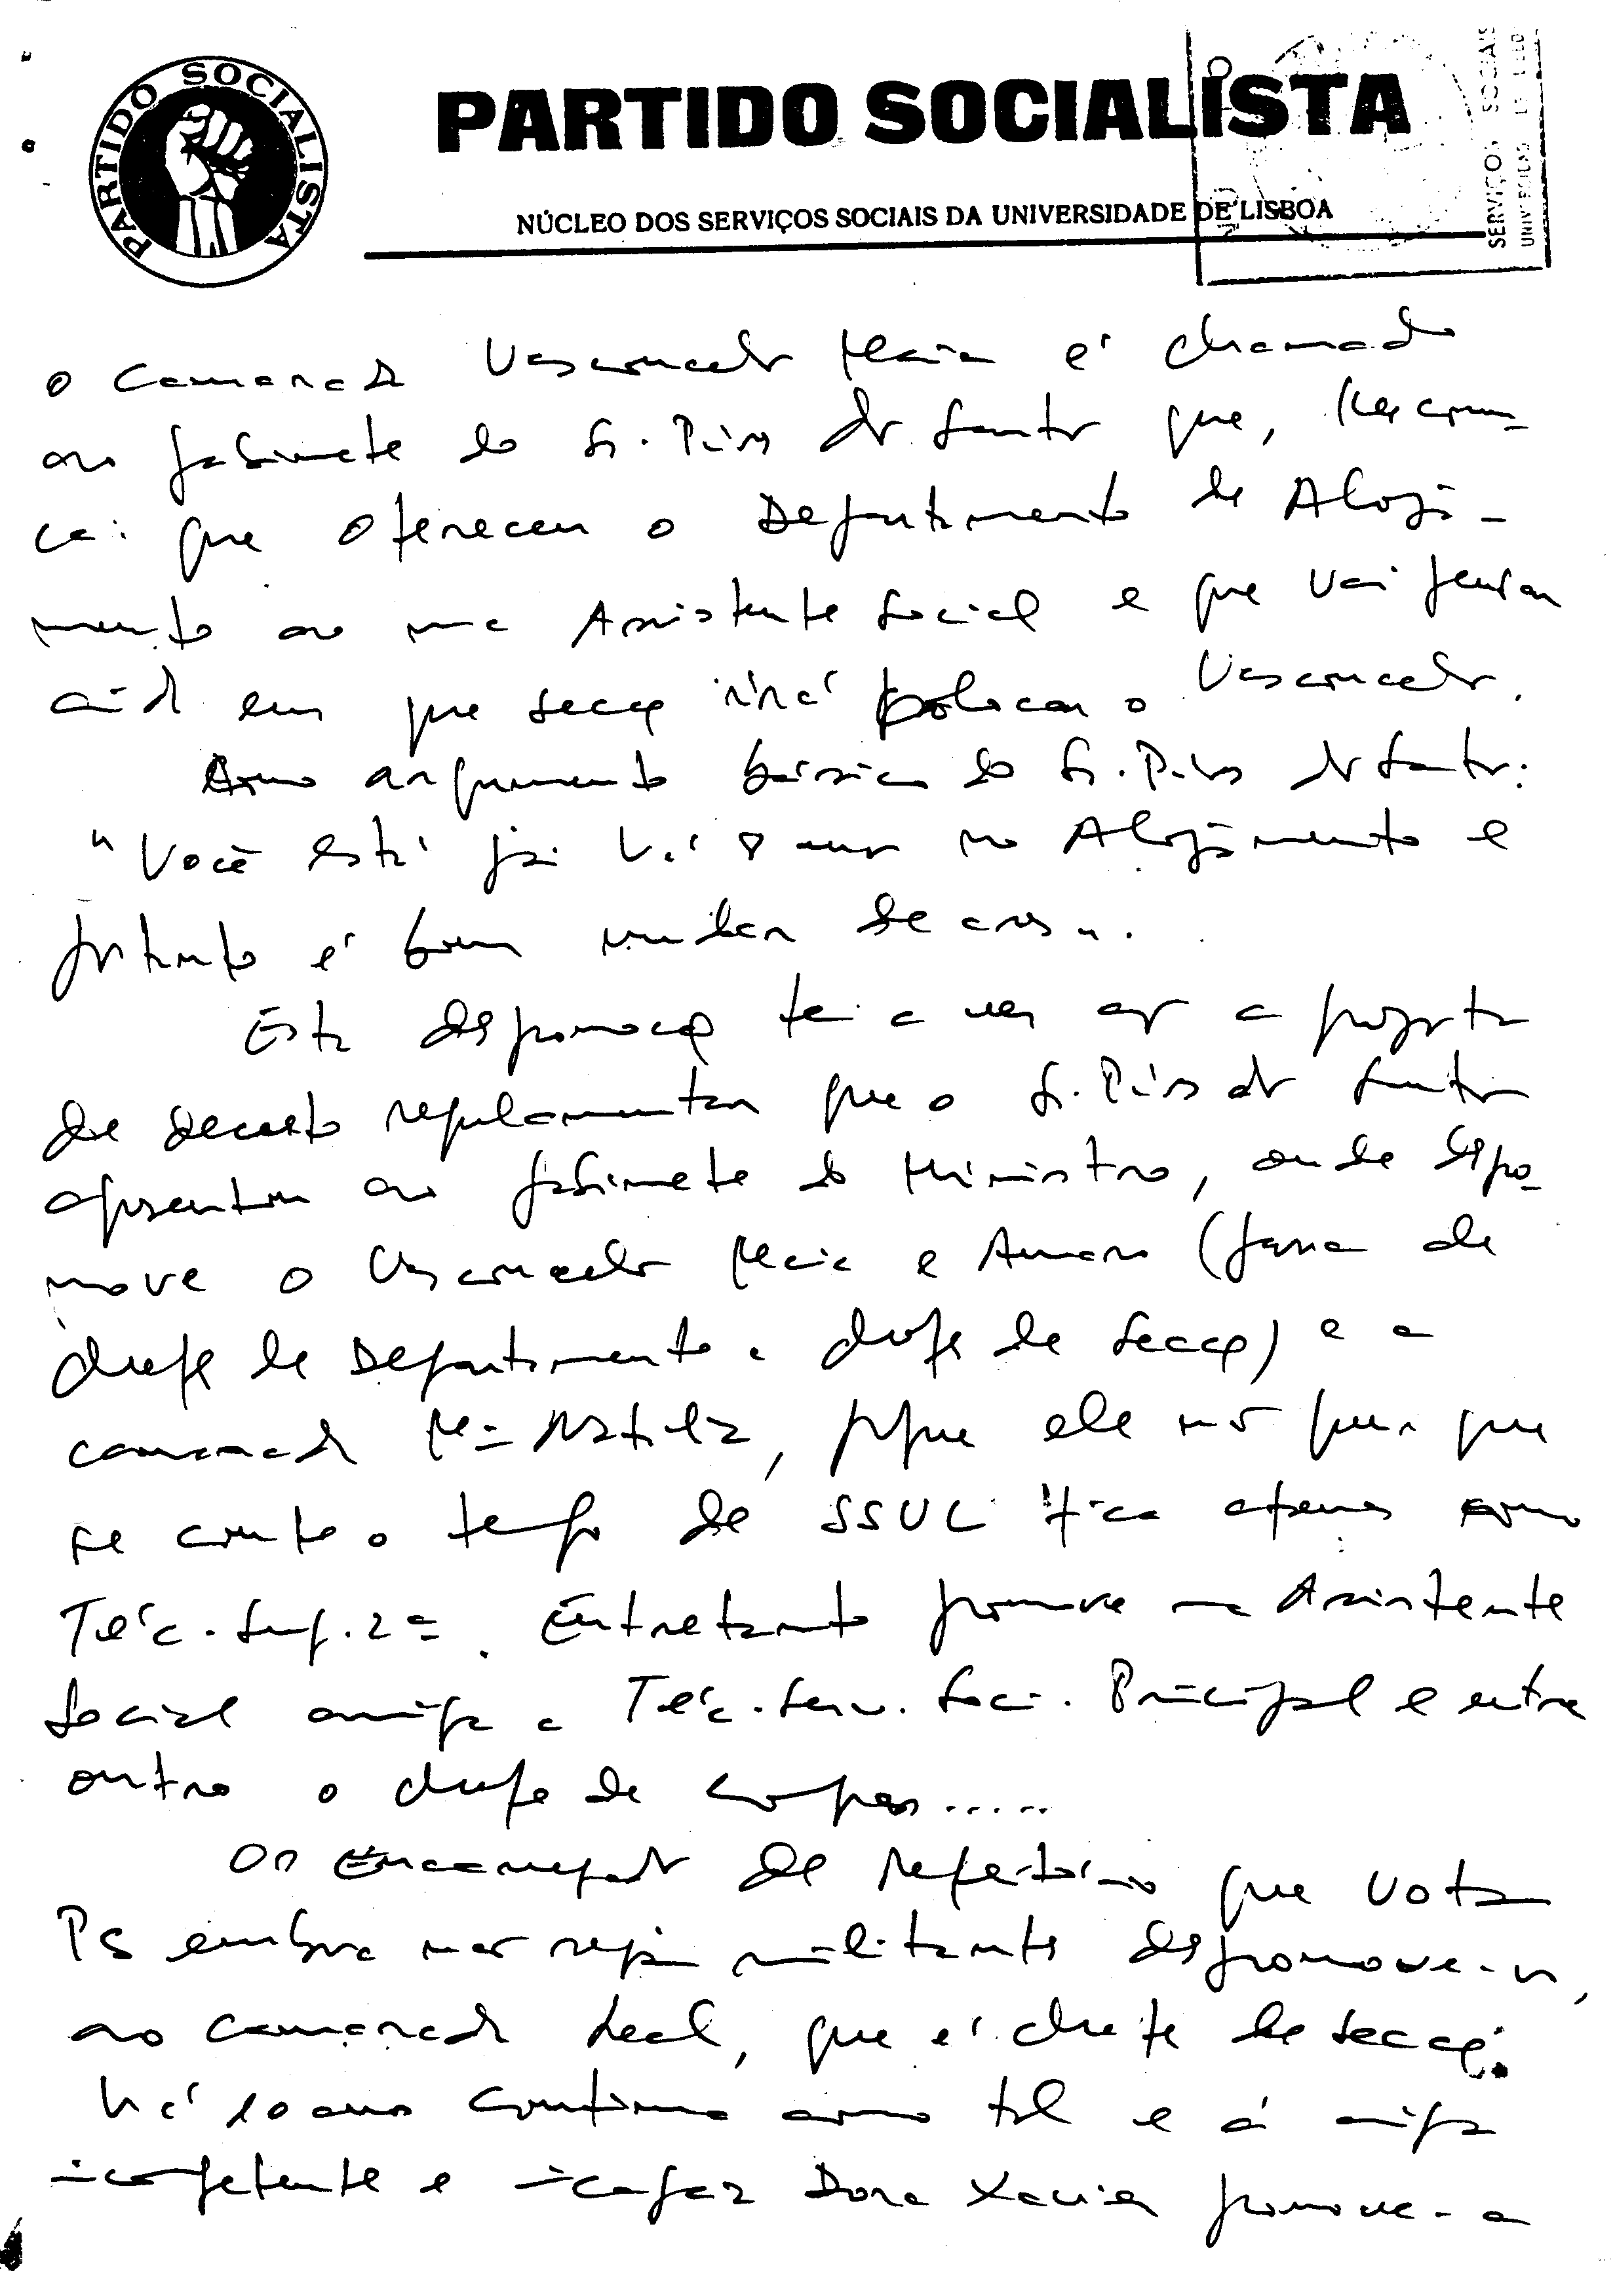 PARTIDO SOCIALISTA
PARTIDO SOCIALISTA
NÚCLEO DOS SERVIÇOS SOCIAIS DA UNIVERSIDADE DE LISBOA
SERVIÇOS SOCIAIS
O Camarada Vasconcelos Maia é chamado
ao gabinete do Sr. Pires dos Santos que, lhe comu-
ca: que ofereceu o Departamento de Aloja-
mento ao uma Assistente Social e que vai pensar
ainda em que secção irá colocar o Vasconcelos.
Como argumento básico do Sr. Pires dos Santos:
"Você está já há 8 anos no Alojamento e
portanto é bom mudar de ares".
Esta despromoção tem a ver com a proposta
de decreto regulamentar que o Sr. Pires dos Santos
apresentou ao gabinete do Ministro, onde despro-
move o Vasconcelos Maia e Amaro (passa de
chefe de Departamento a chefe de secção) e a
camarada Mª Natália, porque ele não quer que
se conte o tempo de SSUL fica apenas como
Téc. Sup. 2ª. Entretanto promove uma Assistente
Social amiga a Téc. Serv. Soci. Principal e entre
outros o chefe de compras.....
Os Encarregados de refeitório que vota
PS embora não seja militante despromove-os,
ao camarada Leal, que é chefe de secção
há 10 anos continua como tal e à amiga
incompetente e incapaz Dora Xavier promove-a